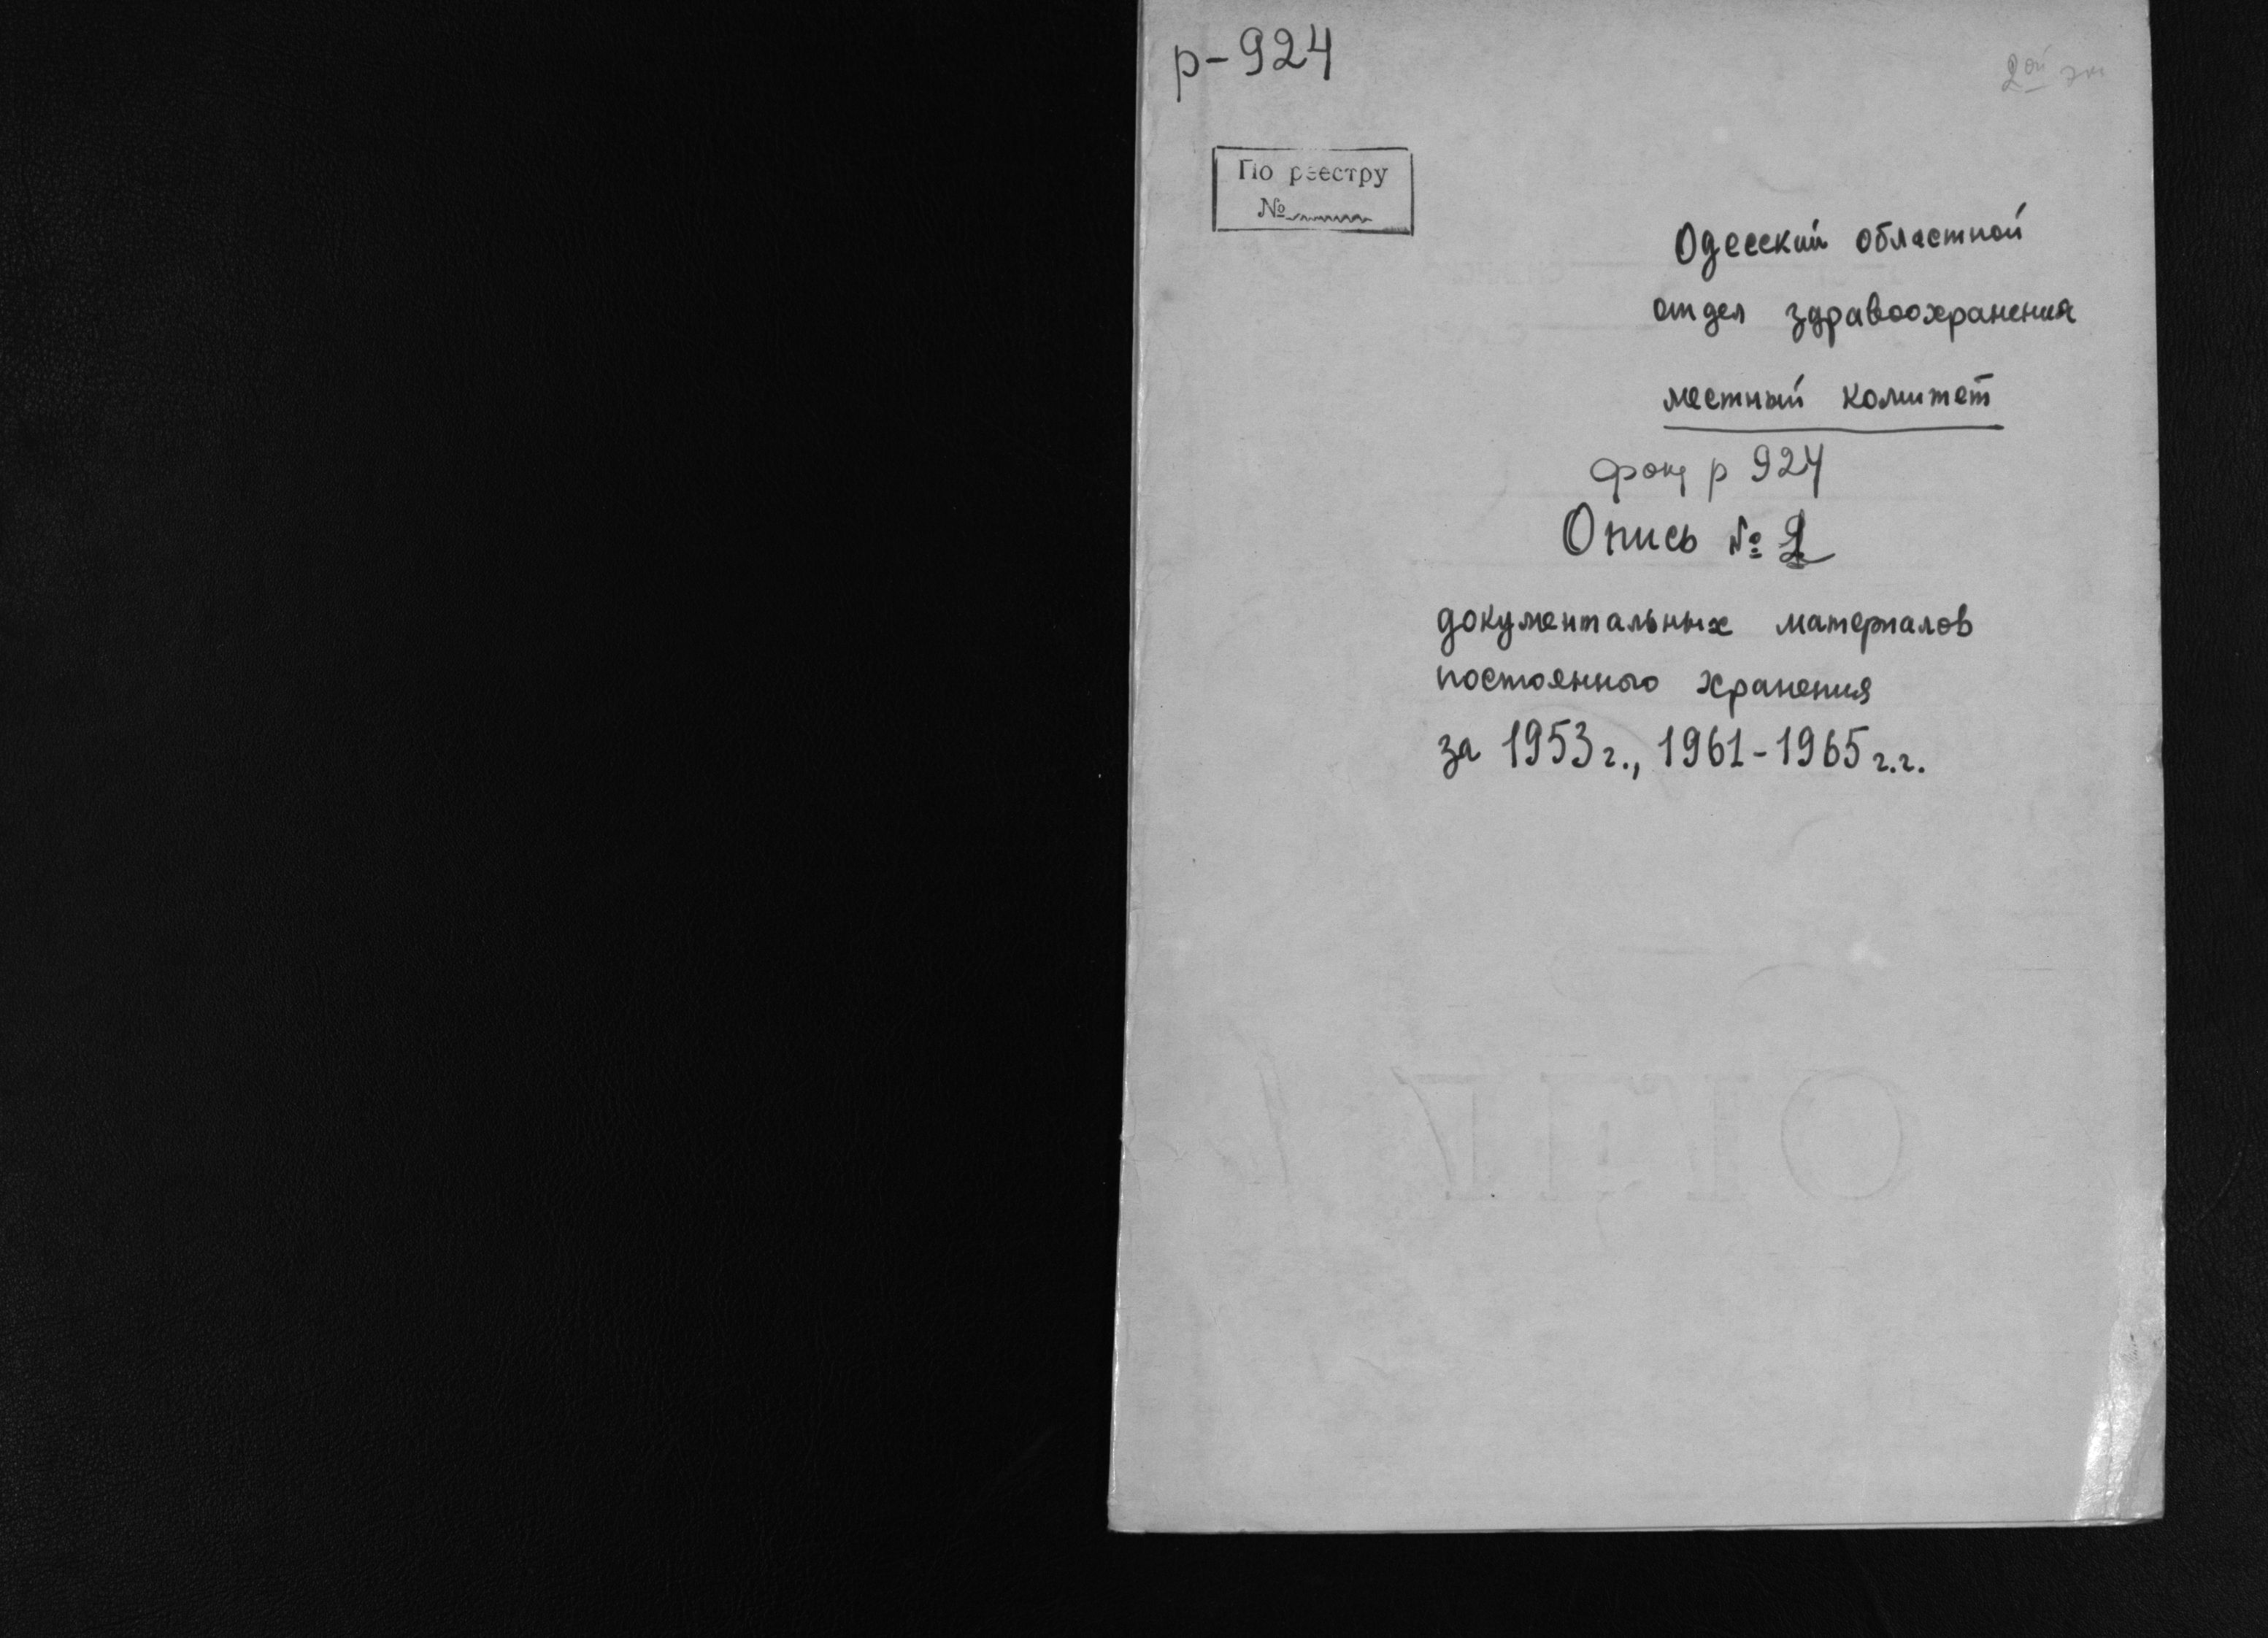 р-924
2ой эк
По реестру
№
Одесский областной
отдел здравоохранения
местный комитет
фонд р 924
Опись № 2
документальных материалов
постоянного хранения
за 1953 г., 1961-1965 г.г.